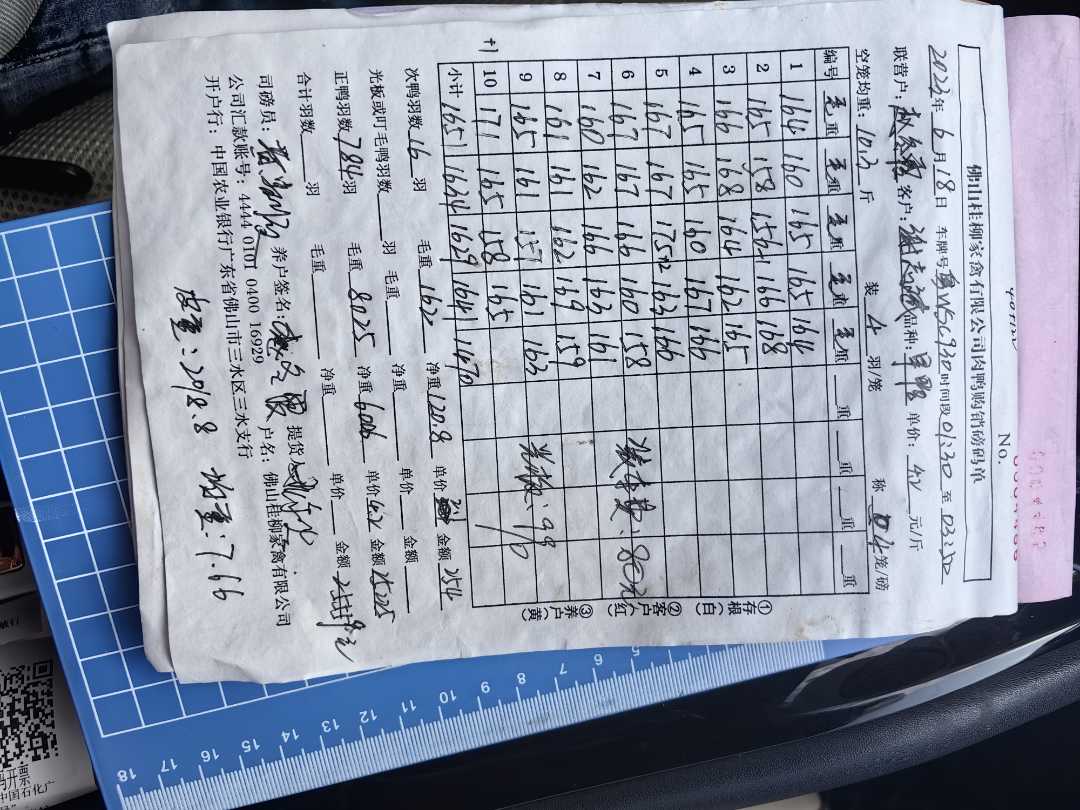 No.
佛山桂柳家禽有限公司肉鸭购销磅码单
2023年6月18日 车牌号 时间段01:30至03:30
联营户: 客户:谢志 品种: 单价:4.2元/斤
空笼均重:10.3斤 装4羽/笼 称4笼/磅
编号 毛重 毛重 毛重 毛重 毛重 重 重 重 重
1 164 160 165 165 164
2 165 158 156+1 166 168
3 166 168 164 162 165
4 165 165 160 167 166
5 167 167 175+2 163 166
6 167 167 166 160 158
7 160 162 166 163 161
8 161 161 162 169 159
9 165 161 157 161 163
10 171 165 158 165
+1
小计 1651 1634 1629 1641 1470
装车费:80元
光板:9.9
①存根(白)
②客户(红)
③养户(黄)
次鸭羽数16羽 毛重162 净重120.8 单价 金额254
光板或叮毛鸭羽数 羽 毛重 净重 单价 金额
正鸭羽数784羽 毛重8025 净重6006 单价4.2 金额25225
合计羽数 羽 毛重 净重 单价 金额
司磅员: 养户签名: 提货
公司汇款账号:4444 0101 0400 16929 户名:佛山桂柳家禽有限公司
开户行:中国农业银行广东省佛山市三水区三水支行
皮重:2018.8 均重:7.66
5 6 7 8 9 10 11 12 13 14 15 16 17 18
码开票
中国石化广